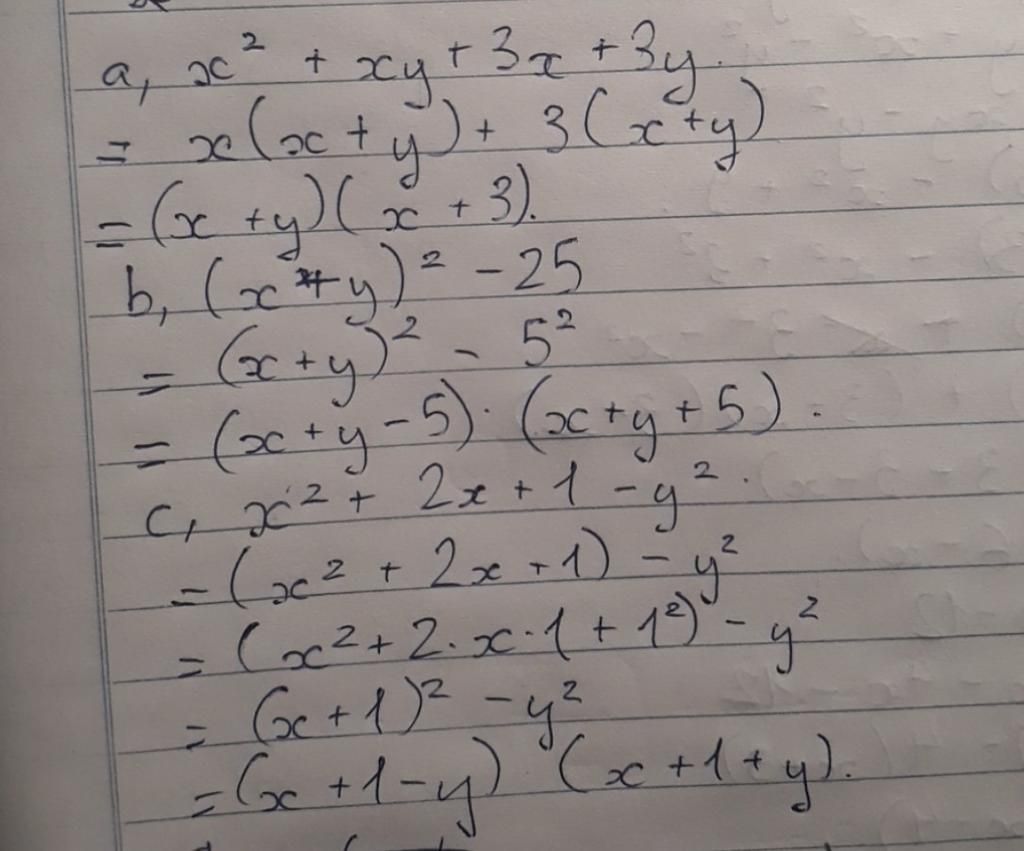 a, x² + xy + 3x + 3y.
= x(x + y) + 3(x+y)
= (x + y)(x + 3).
b, (x + y)² - 25
= (x + y)² - 5²
= (x + y - 5) . (x + y + 5) .
c, x² + 2x + 1 - y² .
= (x² + 2x + 1) - y²
= (x² + 2 . x . 1 + 1²) - y²
= (x + 1)² - y²
= (x + 1 - y) (x + 1 + y).